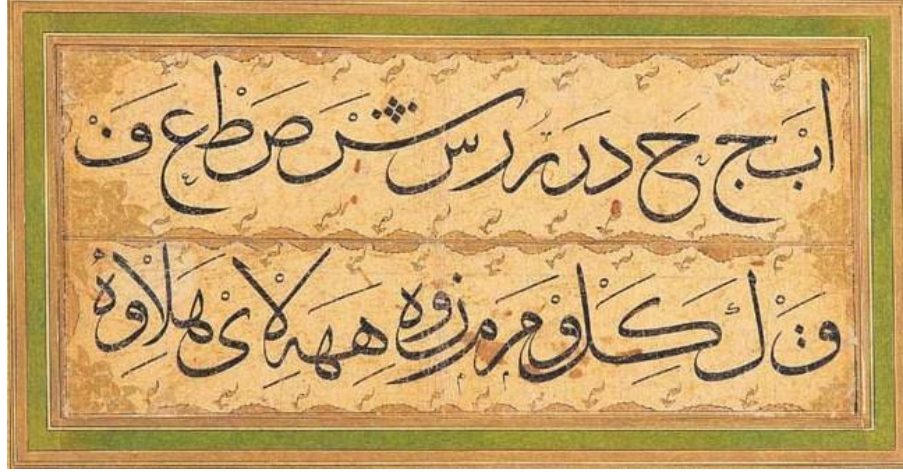 ا ب ج ح د ر ر ر س ش ص ط ع ف
ق ك ل ك ل و م م ن و ه ه ه ه لا ى ه لا و ه